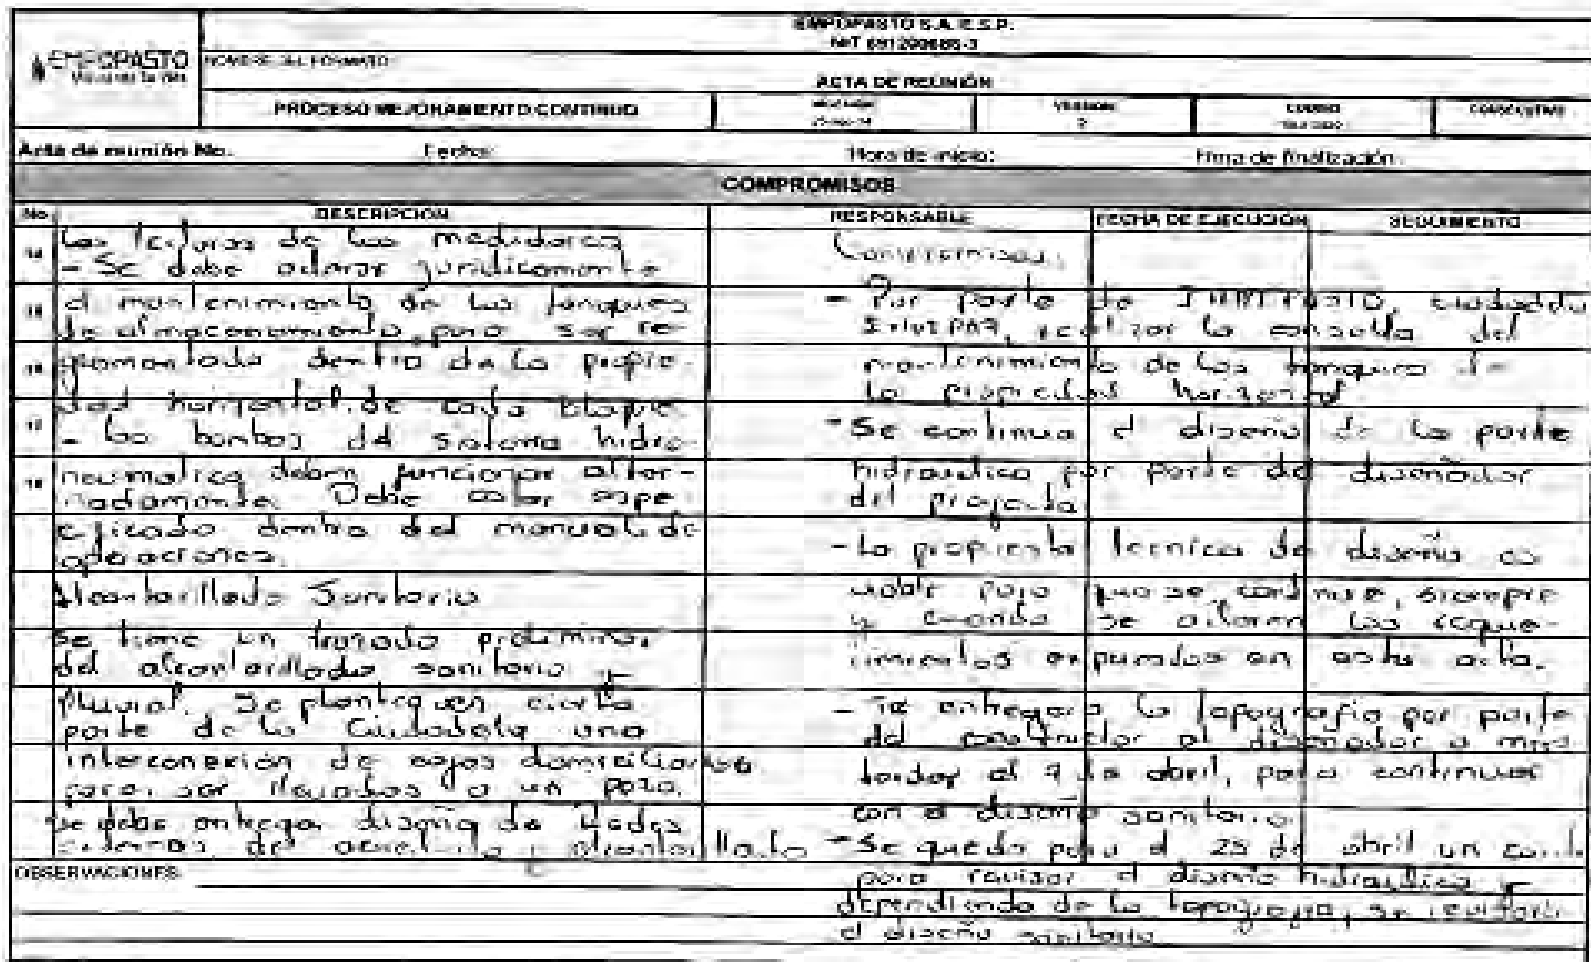 EMPOPASTO S.A. E.S.P.
NIT
EMPOPASTO
NOMBRE DEL FORMATO
ACTA DE REUNIÓN
PROCESO MEJORAMIENTO CONTINUO
VERSION
CODIGO
CONSECUTIVO
Acta de reunión No. Fecha: Hora de inicio: Hora de finalización:
COMPROMISOS
No. DESCRIPCIÓN RESPONSABLE FECHA DE EJECUCIÓN SEGUIMIENTO
las lecturas de los medidores
- Se debe aclarar juridicamente
el mantenimiento de los tanques
de almacenamiento, para ser re-
glamentada dentro de la propie-
dad horizontal de cada bloque
- las bombas del sistema hidro-
neumatico deben funcionar alter-
nadamente. Debe estar espe-
cificado dentro del manual de
operaciones.
Alcantarillado Sanitario
Se tiene un trazado preliminar
del alcantarillado sanitario y
pluvial. Se plantea en cierta
parte de la Ciudadela una
interconexión de cajas domiciliarias
para ser llevadas a un pozo.
Se debe entregar diseño de Redes
del acueducto y alcantarillado
Compromisos:
- Por parte de
realizar la consulta del
mantenimiento de los tanques
la propiedad horizontal
- Se continua el diseño de la parte
hidraulica por parte del diseñador
del proyecto
- La propuesta tecnica de diseño es
viable para que se continue, siempre
y cuando se aclaren los reque-
rimientos expuestos en esta acta.
- Se entregara la topografia por parte
del constructor al diseñador a mas
tardar el 9 de abril, para continuar
con el diseño sanitario.
- Se queda para el 28 de abril un
para revisar el diseño hidraulico y
dependiendo de la topografia, se revisara
el diseño sanitario
OBSERVACIONES: